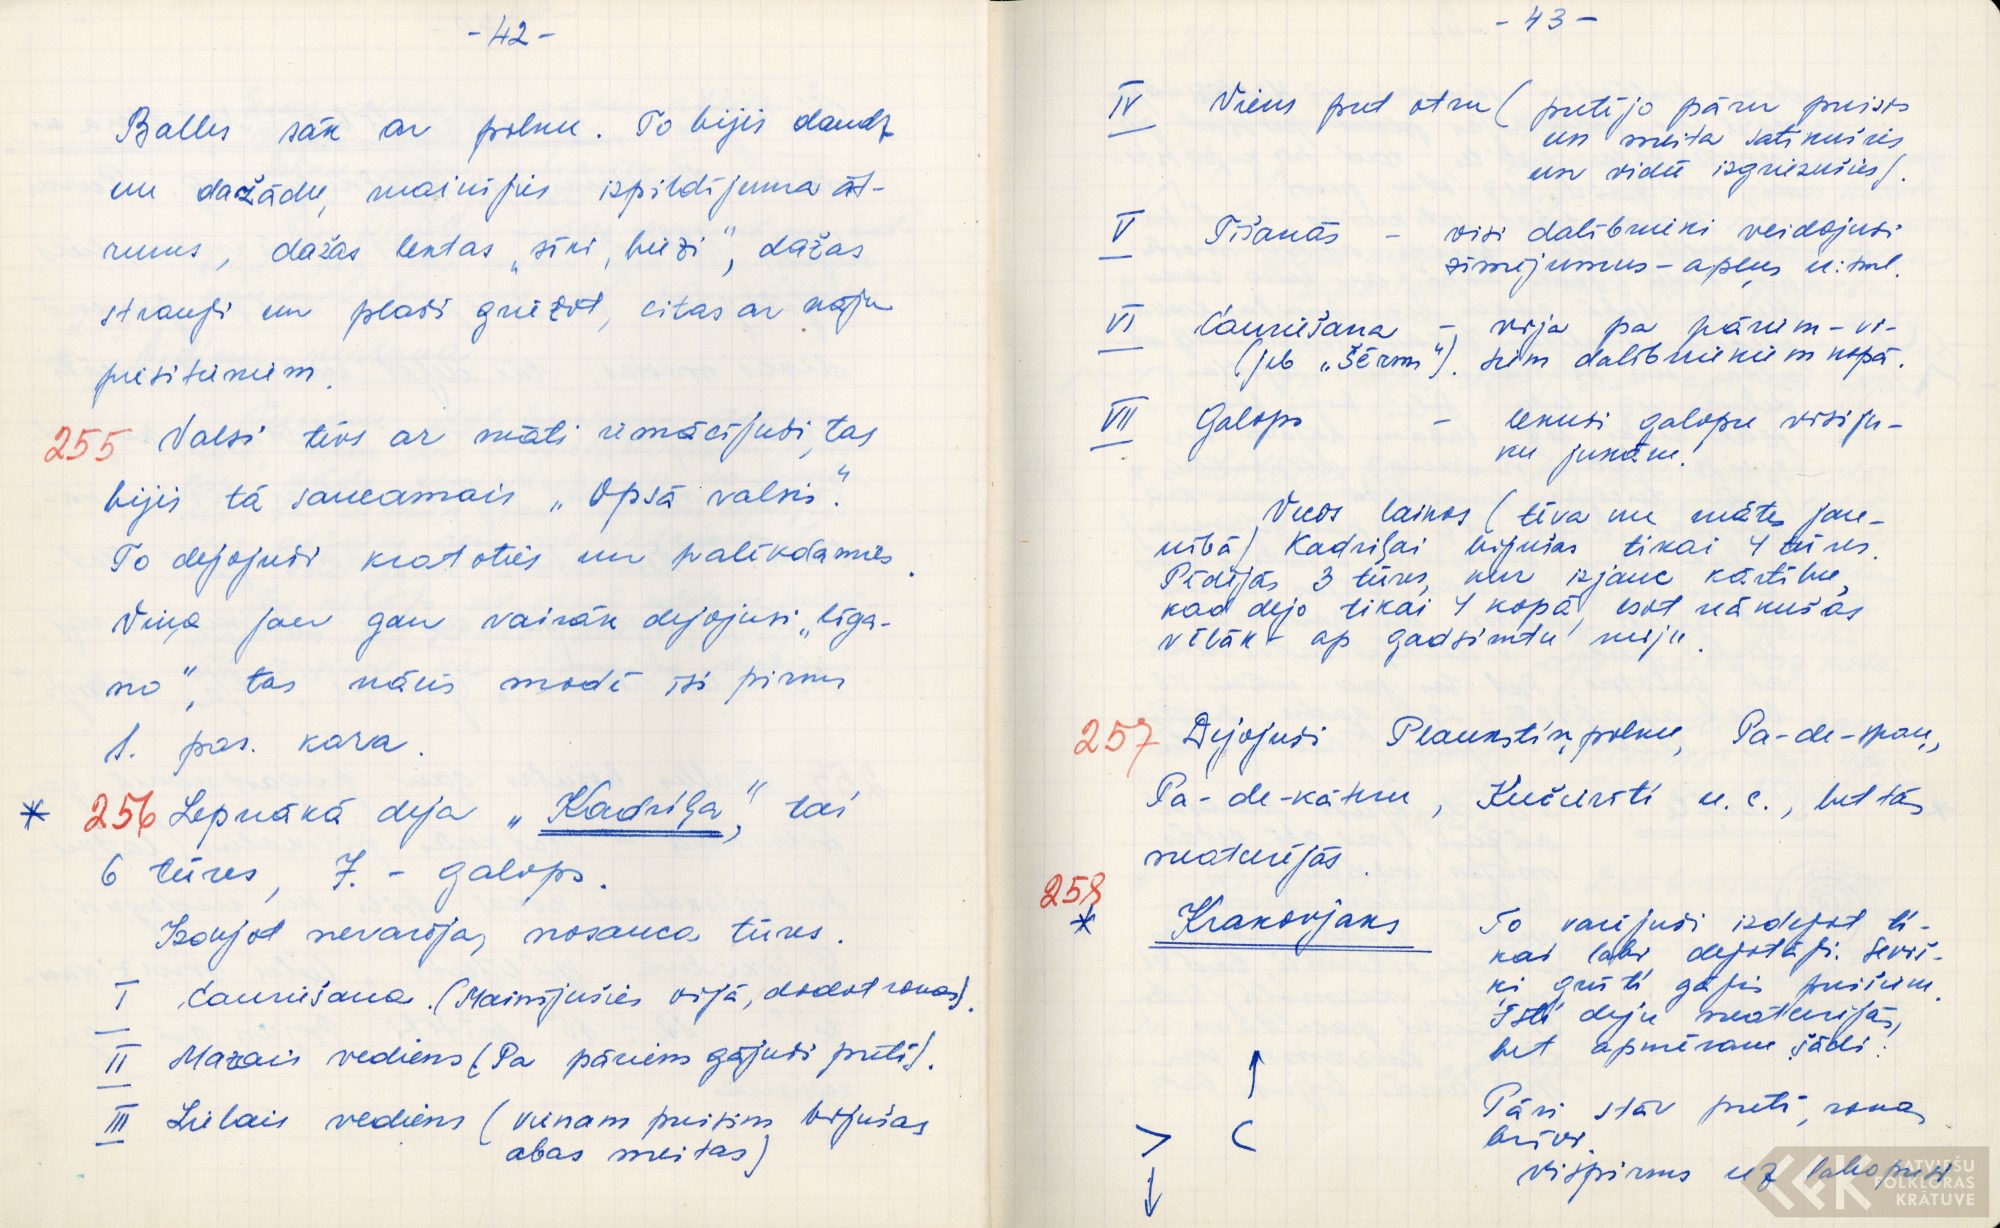 -42-
Balles sāk ar polku. To bijis daudz
un dažādu, mainījies izpildījuma āt-
rums, dažas lēktas „sīki, bieži”, dažas
strauji un plaši griežot, citas ar kāju
piesitieniem.
255 Valsi tēvs ar māti iemācījuši, tas
bijis tā saucamais „Opsā valsis”.
To dejojuši kratoties un palēkdamies.
Viņa jau gan vairāk dejojusi „līga-
no”, tas nācis modē īsi pirms
1. pas. kara.
* 256 Lepnākā deja „Kadriļa”, tai
6 tūres, 7. - galops.
Izdejot nevarēja, nosauca tūres.
I Cauriešana. (Mainījušies vijā, dodot rokas).
II Mazais vediens (Pa pāriem gājuši pretī).
III Lielais vediens (vienam puisim bijušas
abas meitas)
-43-
IV Viens pret otru (pretējo pāru puisis
un meita satikušies
un vidū izgriezušies).
V Tīšanās - visi dalībnieki veidojuši
zīmējumus - apļus u.tml.
VI Cauriešana - vija pa pāriem - vi-
(jeb „Šērms”). siem dalībniekiem kopā.
VII Galops - lekuši galopu visi ju-
ku jukām.
Vecos laikos (tēva un mātes jau-
nībā) Kadriļai bijušas tikai 4 tūres.
Pēdējās 3 tūres, kur izjauc kārtību,
kad dejo tikai 4 kopā, esot nākušas
vēlāk - ap gadsimtu miju.
257 Dejojuši Plaukstiņpolku, Pa-de-span,
Pa-de-kātru, Kučierīti u.c., bet tās
neatcerējās.
258
* Krakovjaks To varējuši izdejot ti-
kai labi dejotāji. Seviš-
ki grūti gājis puišiem.
Īsti deju neatcerējās,
bet apmēram šādi:
Pāri stāv pretī, rokas
brīvi.
Vispirms uz labo pusi
LATVIEŠU
FOLKLORAS
KRĀTUVE